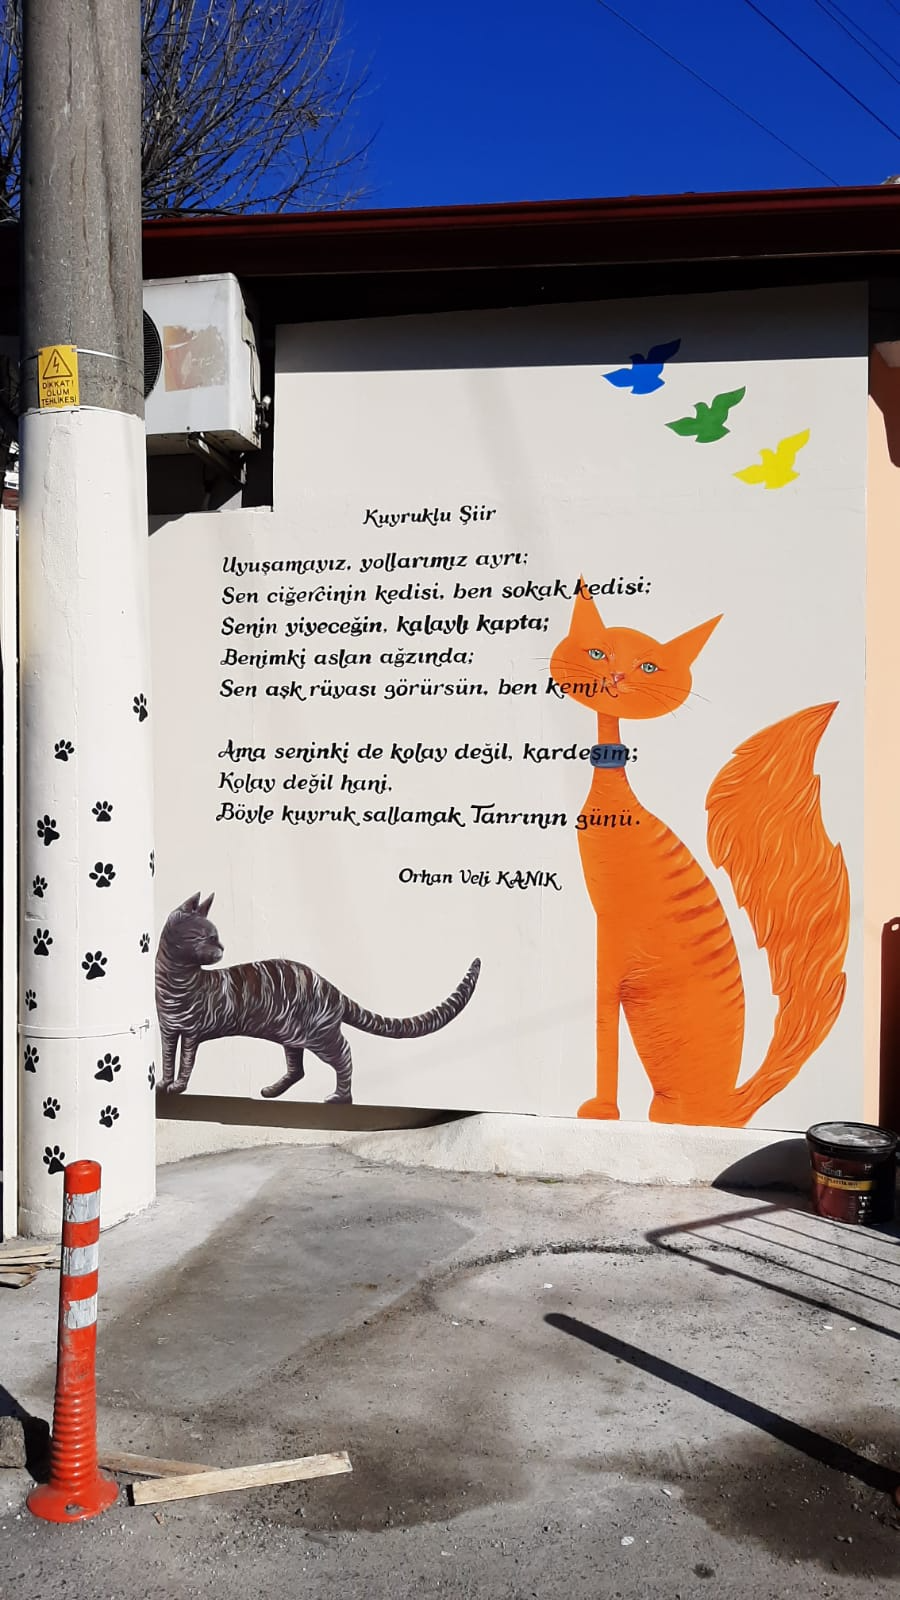 DİKKAT!
ÖLÜM
TEHLİKESİ
Kuyruklu Şiir
Uyuşamayız, yollarımız ayrı;
Sen ciğercinin kedisi, ben sokak kedisi;
Senin yiyeceğin, kalaylı kapta;
Benimki aslan ağzında;
Sen aşk rüyası görürsün, ben kemik
Ama seninki de kolay değil, kardeşim;
Kolay değil hani,
Böyle kuyruk sallamak Tanrının günü.
Orhan Veli KANIK